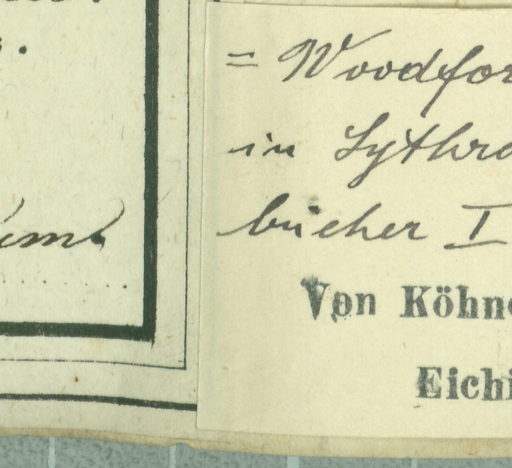 = Woodfor
in Lythra
bücher I
Von Köhne
Eichi